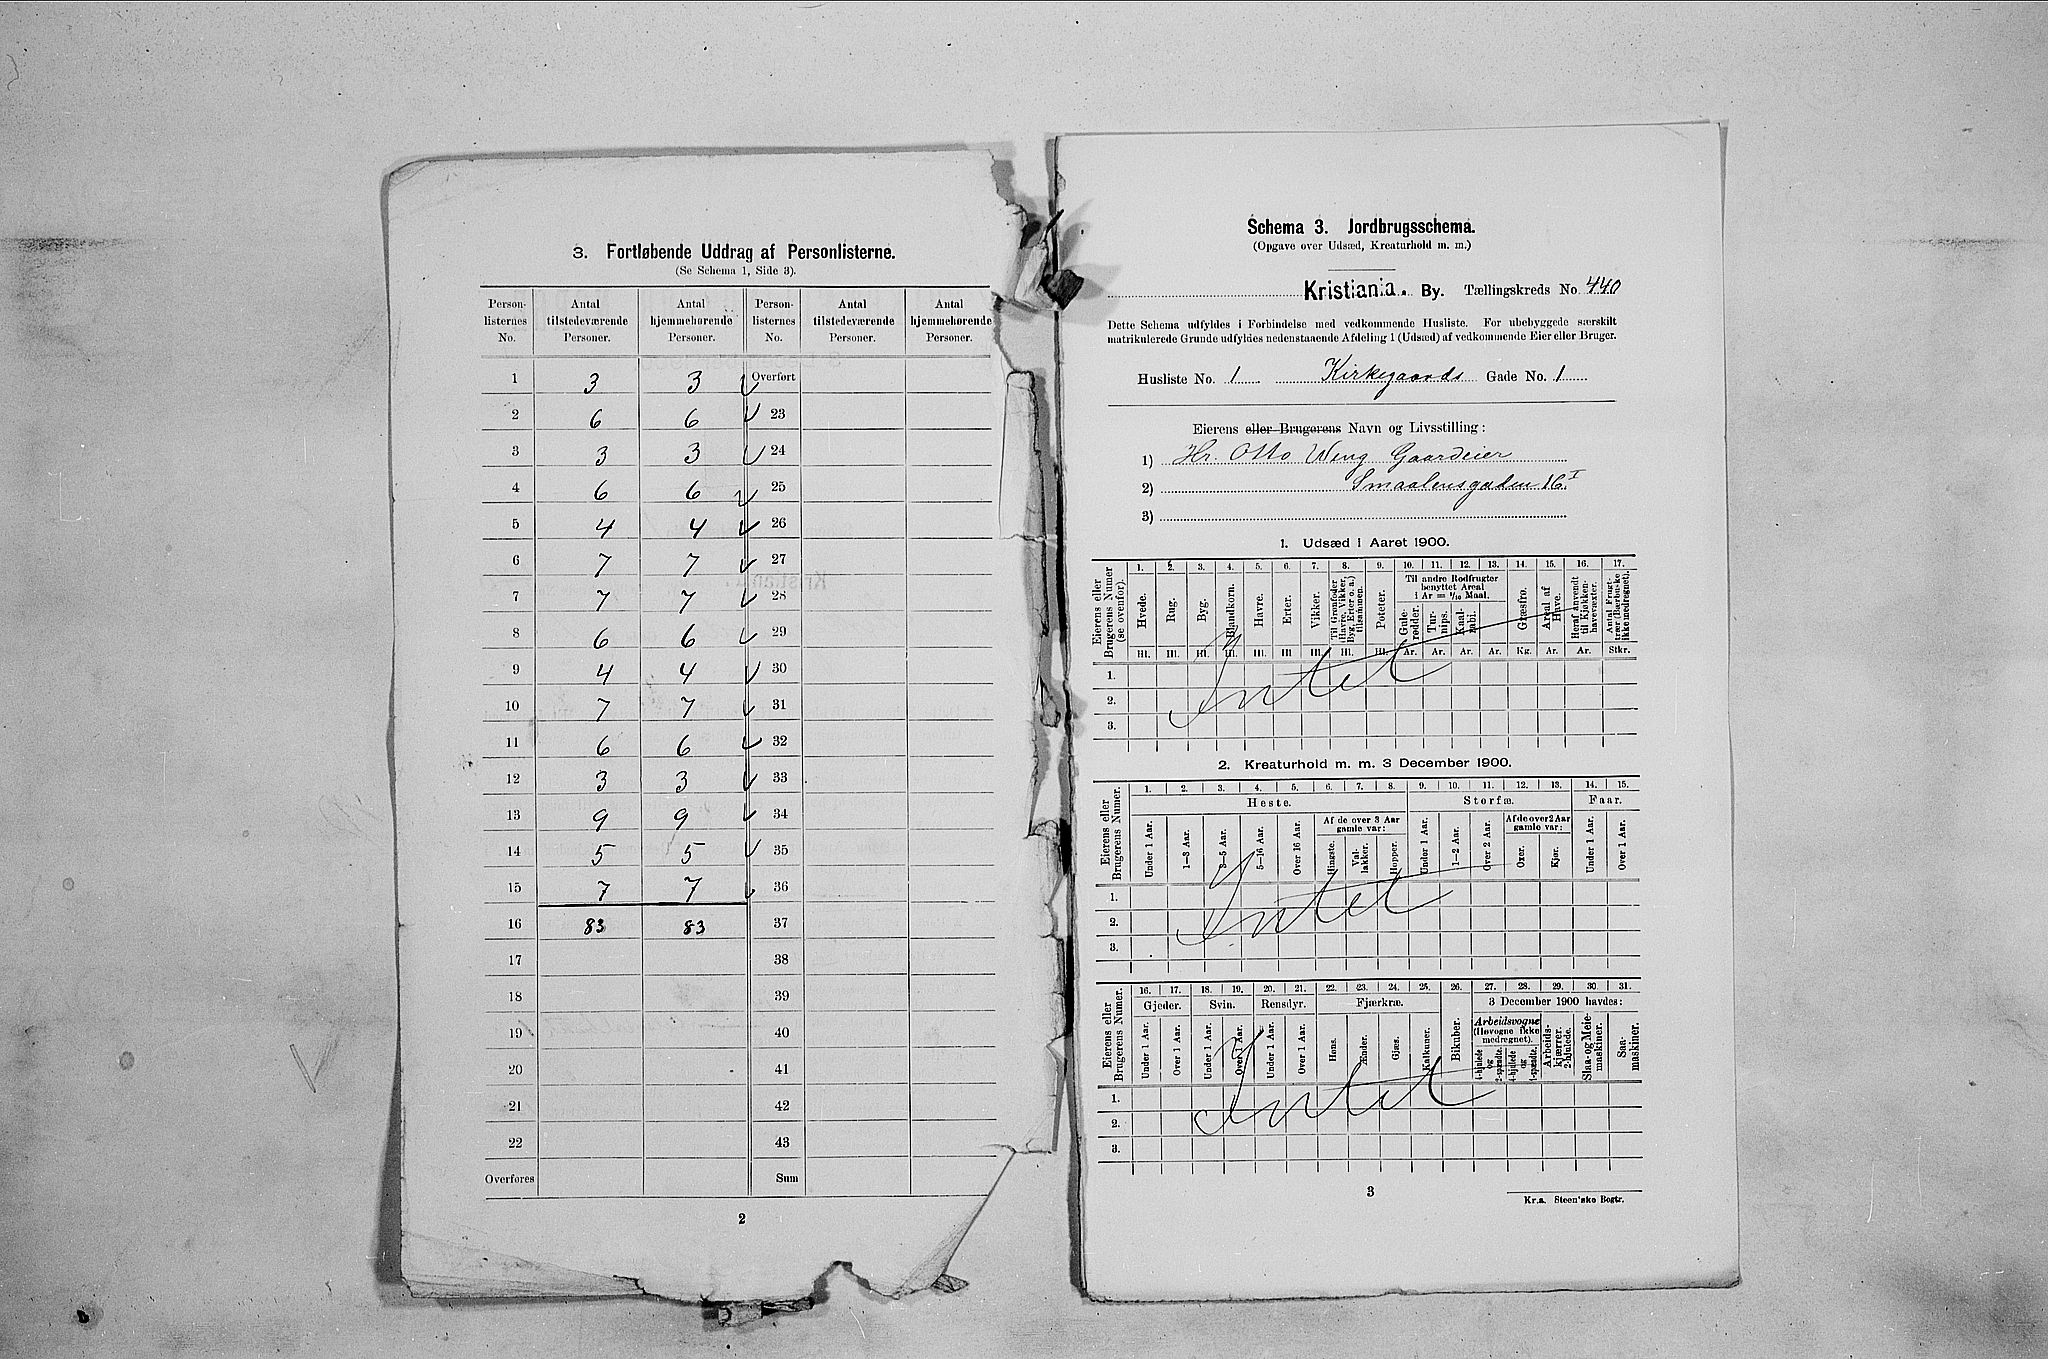 3. Fortløbende Uddrag af Personlisterne.
(Se Schema 1, Side 3).
Person-listernes No. | Antal tilstedeværende Personer. | Antal hjemmehørende Personer. | Person-listernes No. | Antal tilstedeværende Personer. | Antal hjemmehørende Personer.
1 3 3 Overført
2 6 6 23
3 3 3 24
4 6 6 25
5 4 4 26
6 7 7 27
7 7 7 28
8 6 6 29
9 4 4 30
10 7 7 31
11 6 6 32
12 3 3 33
13 9 9 34
14 5 5 35
15 7 7 36
16 83 83 37
17 38
18 39
19 40
20 41
21 42
22 43
Overføres Sum
2
Schema 3. Jordbrugsschema.
(Opgave over Udsæd, Kreaturhold m. m.)
Kristiania. By. Tællingskreds No. 440
Dette Schema udfyldes i Forbindelse med vedkommende Husliste. For ubebyggede særskilt
matrikulerede Grunde udfyldes nedenstaaende Afdeling 1 (Udsæd) af vedkommende Eier eller Bruger.
Husliste No. 1 Kirkegaards Gade No. 1
Eierens eller Brugerens Navn og Livsstilling:
1) Hr. Otto Weng Gaardeier
2) Smaalensgaden 16 I
3)
1. Udsæd i Aaret 1900.
Eierens eller Brugerens Numer (se ovenfor).
1. 2. 3. 4. 5. 6. 7. 8. 9. 10. 11. 12. 13. 14. 15. 16. 17.
Hvede. Rug. Byg. Blandkorn. Havre. Erter. Vikker. Til Grønfoder (Havre, Vikker, Byg, Erter o. a.) tilsammen. Poteter.
Til andre Rodfrugter benyttet Areal i Ar = 1/10 Maal.
Gulerødder. Turnips. Kaalrabi. Græsfrø. Areal af Have. Heraf anvendt til Kjøkkenhavevæxter. Antal Frugttrær (Bærbuske ikke medregnet).
Hl. Hl. Hl. Hl. Hl. Hl. Hl. Hl. Hl. Ar. Ar. Ar. Ar. Kg. Ar. Ar. Stkr.
1.
2.
3.
Intet
2. Kreaturhold m. m. 3 December 1900.
Eierens eller Brugerens Numer.
1. 2. 3. 4. 5. 6. 7. 8. 9. 10. 11. 12. 13. 14. 15.
Heste. Storfæ. Faar.
Under 1 Aar. 1—3 Aar. 3—5 Aar. 5—16 Aar. Over 16 Aar. Af de over 3 Aar gamle var: Hingste. Vallakker. Hopper. Under 1 Aar. 1—2 Aar. Over 2 Aar. Af de over 2 Aar gamle var: Oxer. Kjør. Under 1 Aar. Over 1 Aar.
1.
2.
3.
Intet
Eierens eller Brugerens Numer.
16. 17. 18. 19. 20. 21. 22. 23. 24. 25. 26. 27. 28. 29. 30. 31.
Gjeder. Svin. Rensdyr. Fjærkræ. Bikuber. 3 December 1900 havdes:
Under 1 Aar. Over 1 Aar. Under 1 Aar. Over 1 Aar. Under 1 Aar. Over 1 Aar. Høns. Ænder. Gjæs. Kalkuner.
Arbeidsvogne (Høvogne ikke medregnet). 4-hjulede og 2-spændte. 4-hjulede og 1-spændte. Arbeidskjærrer. 2-hjulede. Slaa- og Meiemaskiner. Saamaskiner.
1.
2.
3.
Intet
3
Kr.a. Steen'ske Bogtr.